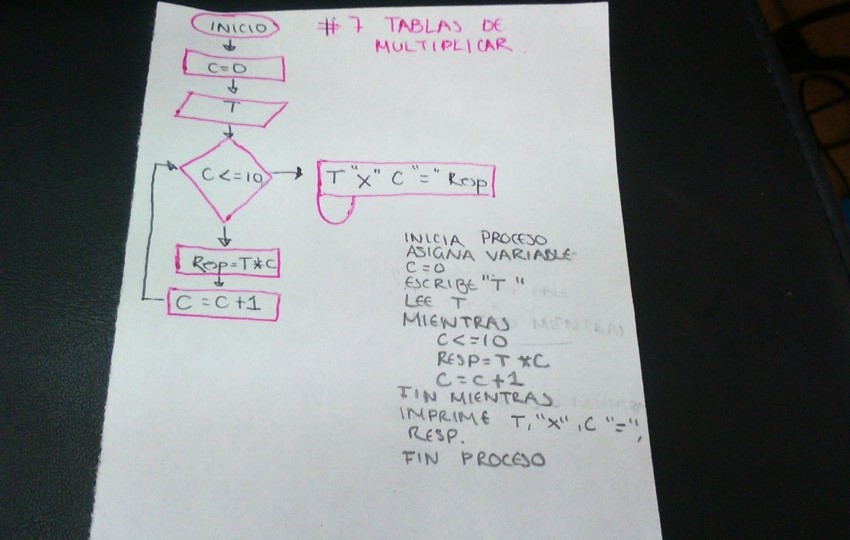 INICIO
# 7 TABLAS DE
MULTIPLICAR
C=0
T
C <=10
T "x" C "=" Resp
Resp=T*C
C = C+1
INICIA PROCESO
ASIGNA VARIABLE
C=0
ESCRIBE "T"
LEE T
MIENTRAS
C<=10
RESP=T *C
C=C+1
FIN MIENTRAS
IMPRIME T,"x",C "=",
RESP.
FIN PROCESO